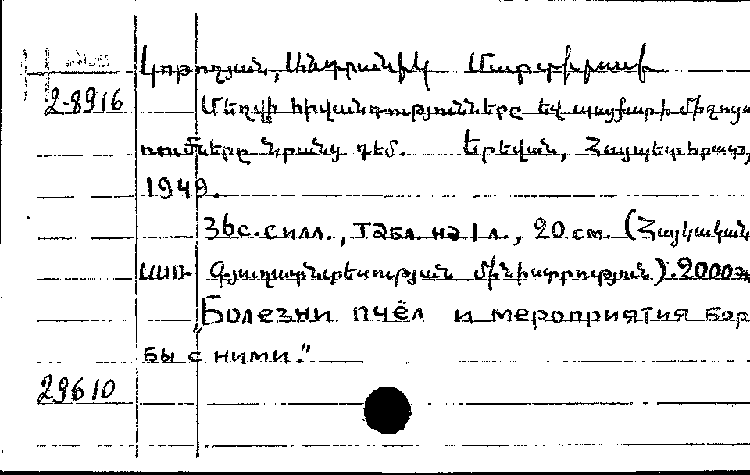 2-8916
Մեղվի հիվանդությունները եվ պայքարի միջոցա
ումները նրանց դեմ. Երեվան, Հայպետհրատ,
1949.
36с. с илл., табл. на 1 л., 20 см. (Հայկական
ՍՍՌ Գյուղատնտեսության մինիստրություն). 2000
"Болезни пчёл и мероприятия бор
бы с ними."
29610